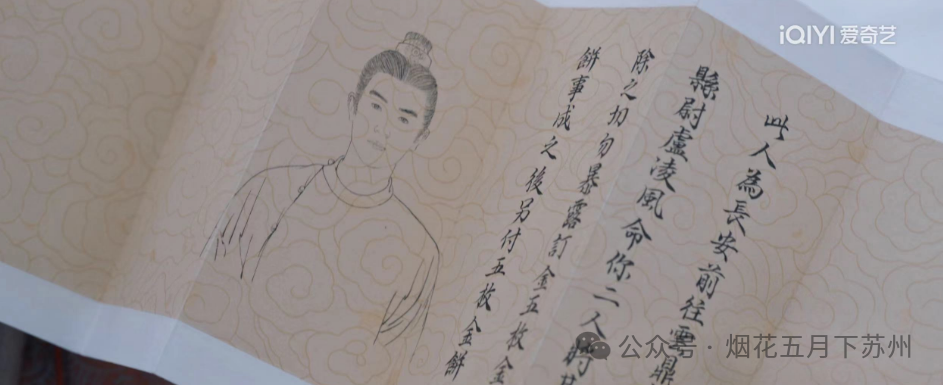 iQIYI 爱奇艺
此人為長安前往雲鼎
縣尉盧凌風命你二人將其
除之切勿暴露訂金五枚金
餅事成之後另付五枚金餅
公众号·烟花五月下苏州